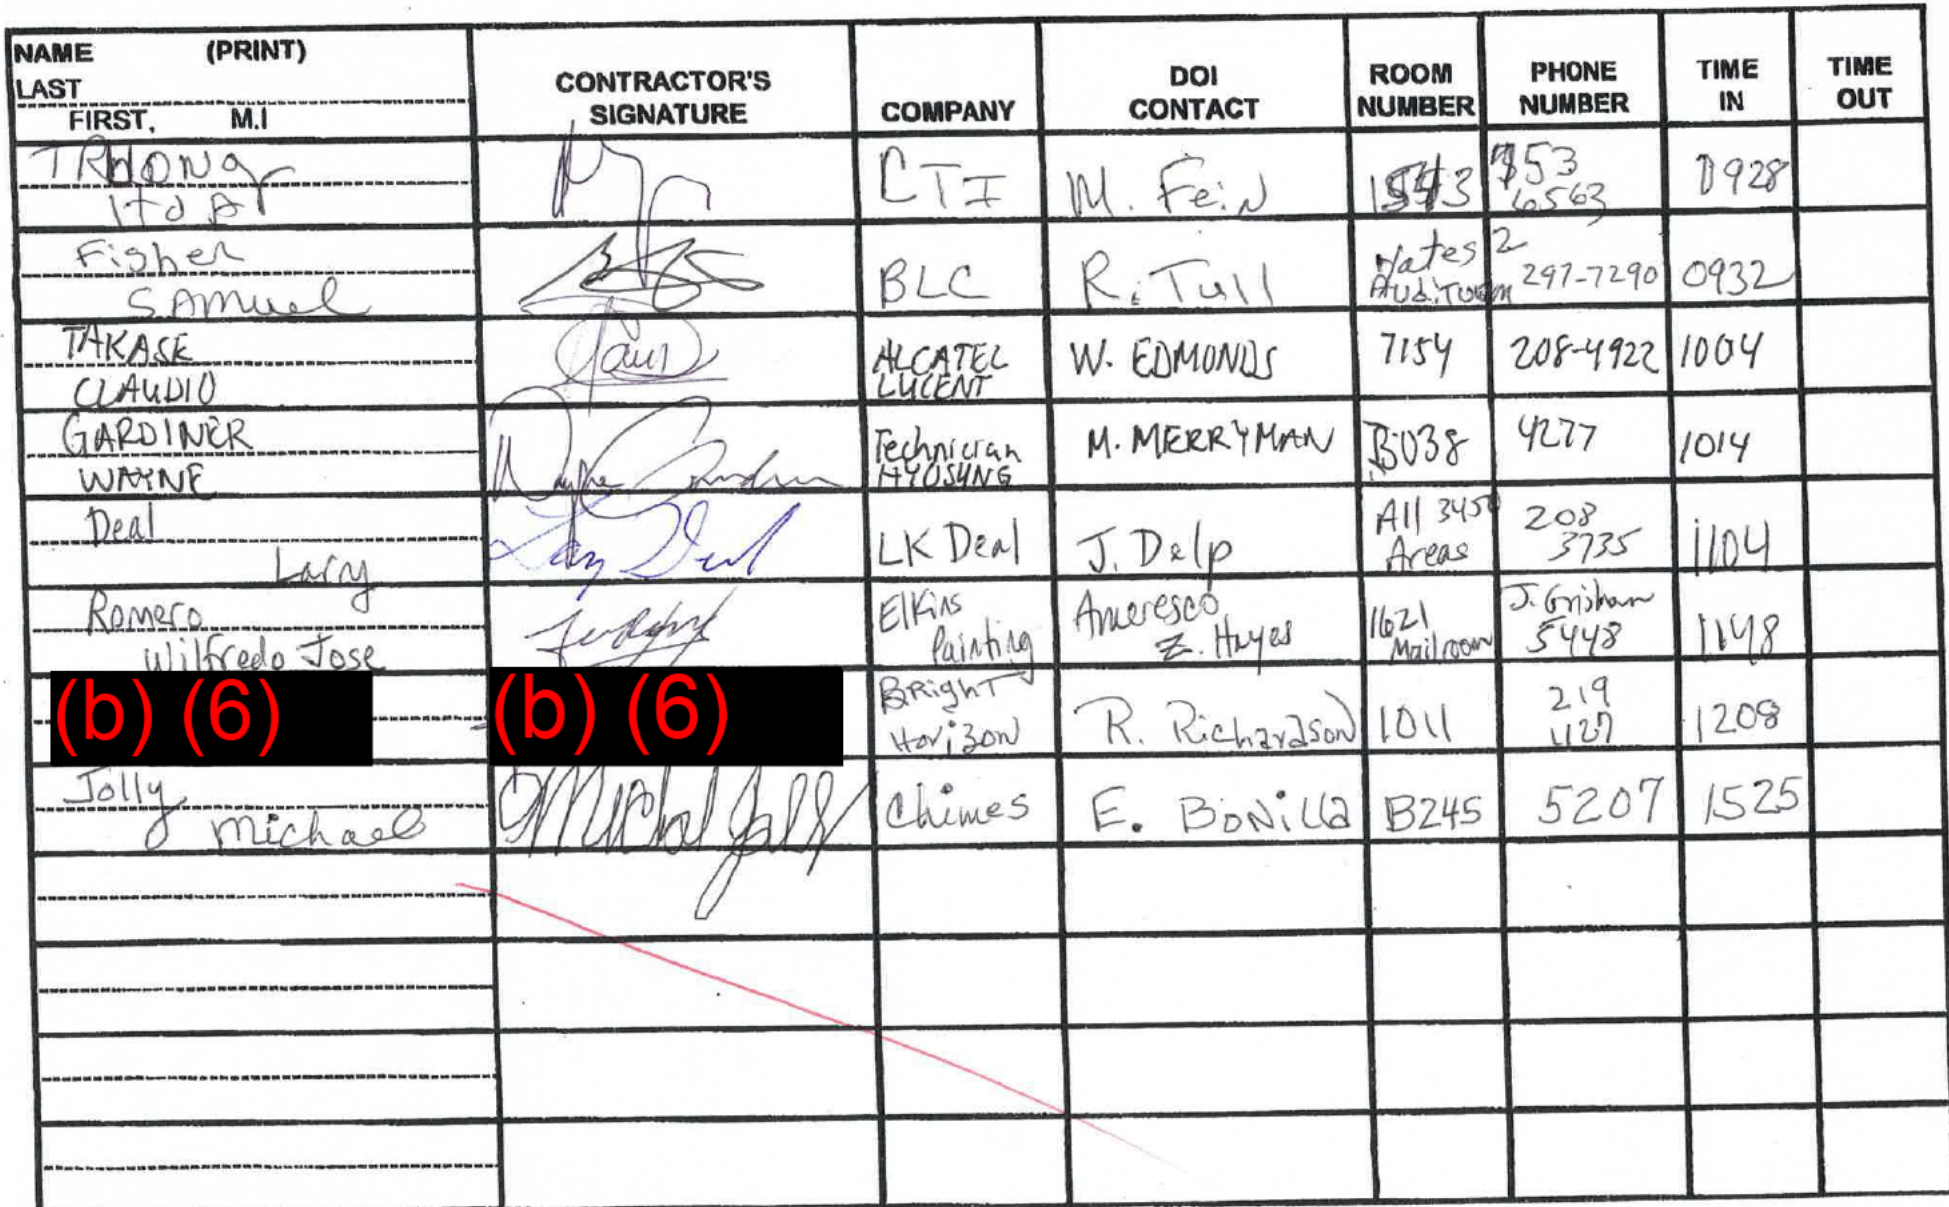 NAME (PRINT)
LAST
FIRST, M.I
CONTRACTOR'S SIGNATURE
COMPANY
DOI CONTACT
ROOM NUMBER
PHONE NUMBER
TIME IN
TIME OUT
TRUONG
CTI M. Fein 6563 0928
Fisher
Samuel
BLC R. Tull Yates 2 Auditorium 297-7290 0932
TAKASE
CLAUDIO
ALCATEL LUCENT W. EDMONDS 7154 208-4922 1004
GARDINER
WAYNE
Wayne Gardiner
Technician HYOSUNG M. MERRYMAN B038 4277 1014
Deal
Larry
Larry Deal
LK Deal J. Delp All 3450 Areas 208 3735 1104
Romero
Wilfredo Jose
Elkins Painting Ameresco Z. Hayes 1621 Mailroom J. Grisham 5448 1148
(b) (6) (b) (6) Bright Horizon R. Richardson 1011 219 1127 1208
Jolly
Michael
Michael Jolly
Chimes E. Bonilla B245 5207 1525